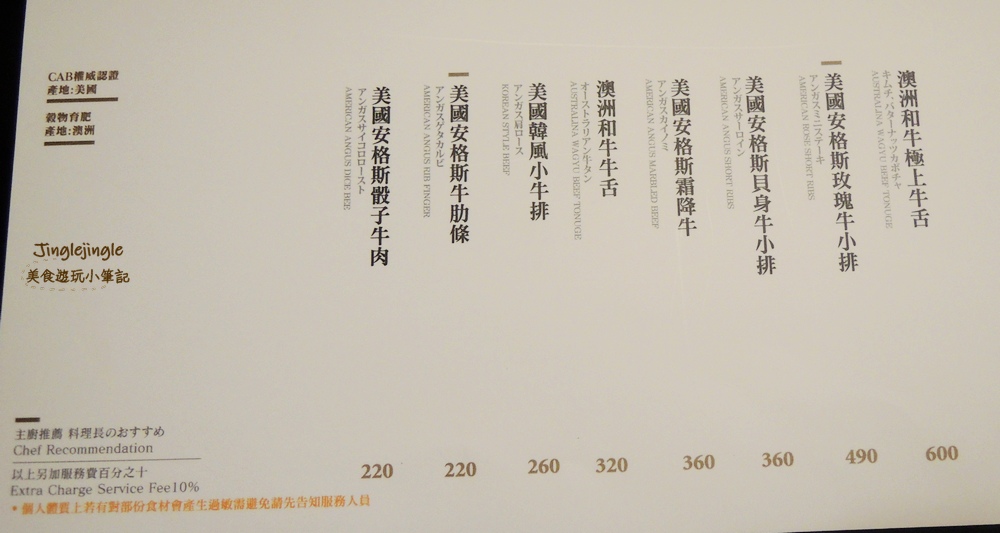 澳洲和牛極上牛舌
キムチ、バターナッツカボチャ
AUSTRALINA WAGYU BEEF TONUGE
600
美國安格斯玫瑰牛小排
アンガスミニステーキ
AMERICAN ROSE SHORT RIBS
490
美國安格斯貝身牛小排
アンガスサーロイン
AMERICAN ANGUS SHORT RIBS
360
美國安格斯霜降牛
アンガスカイノミ
AMERICAN ANGUS MARBLED BEEF
360
澳洲和牛牛舌
オーストラリアン牛タン
AUSTRALINA WAGYU BEEF TONUGE
320
美國韓風小牛排
アンガス肩ロース
KOREAN STYLE BEEF
260
美國安格斯牛肋條
アンガスゲタカルビ
AMERICAN ANGUS RIB FINGER
220
美國安格斯骰子牛肉
アンガスサイコロロースト
AMERICAN ANGUS DICE BEE
220
CAB權威認證
產地:美國
穀物育肥
產地:澳洲
Jinglejingle
美食遊玩小筆記
主廚推薦 料理長のおすすめ
Chef Recommendation
以上另加服務費百分之十
Extra Charge Service Fee10%
* 個人體質上若有對部份食材會產生過敏需避免請先告知服務人員